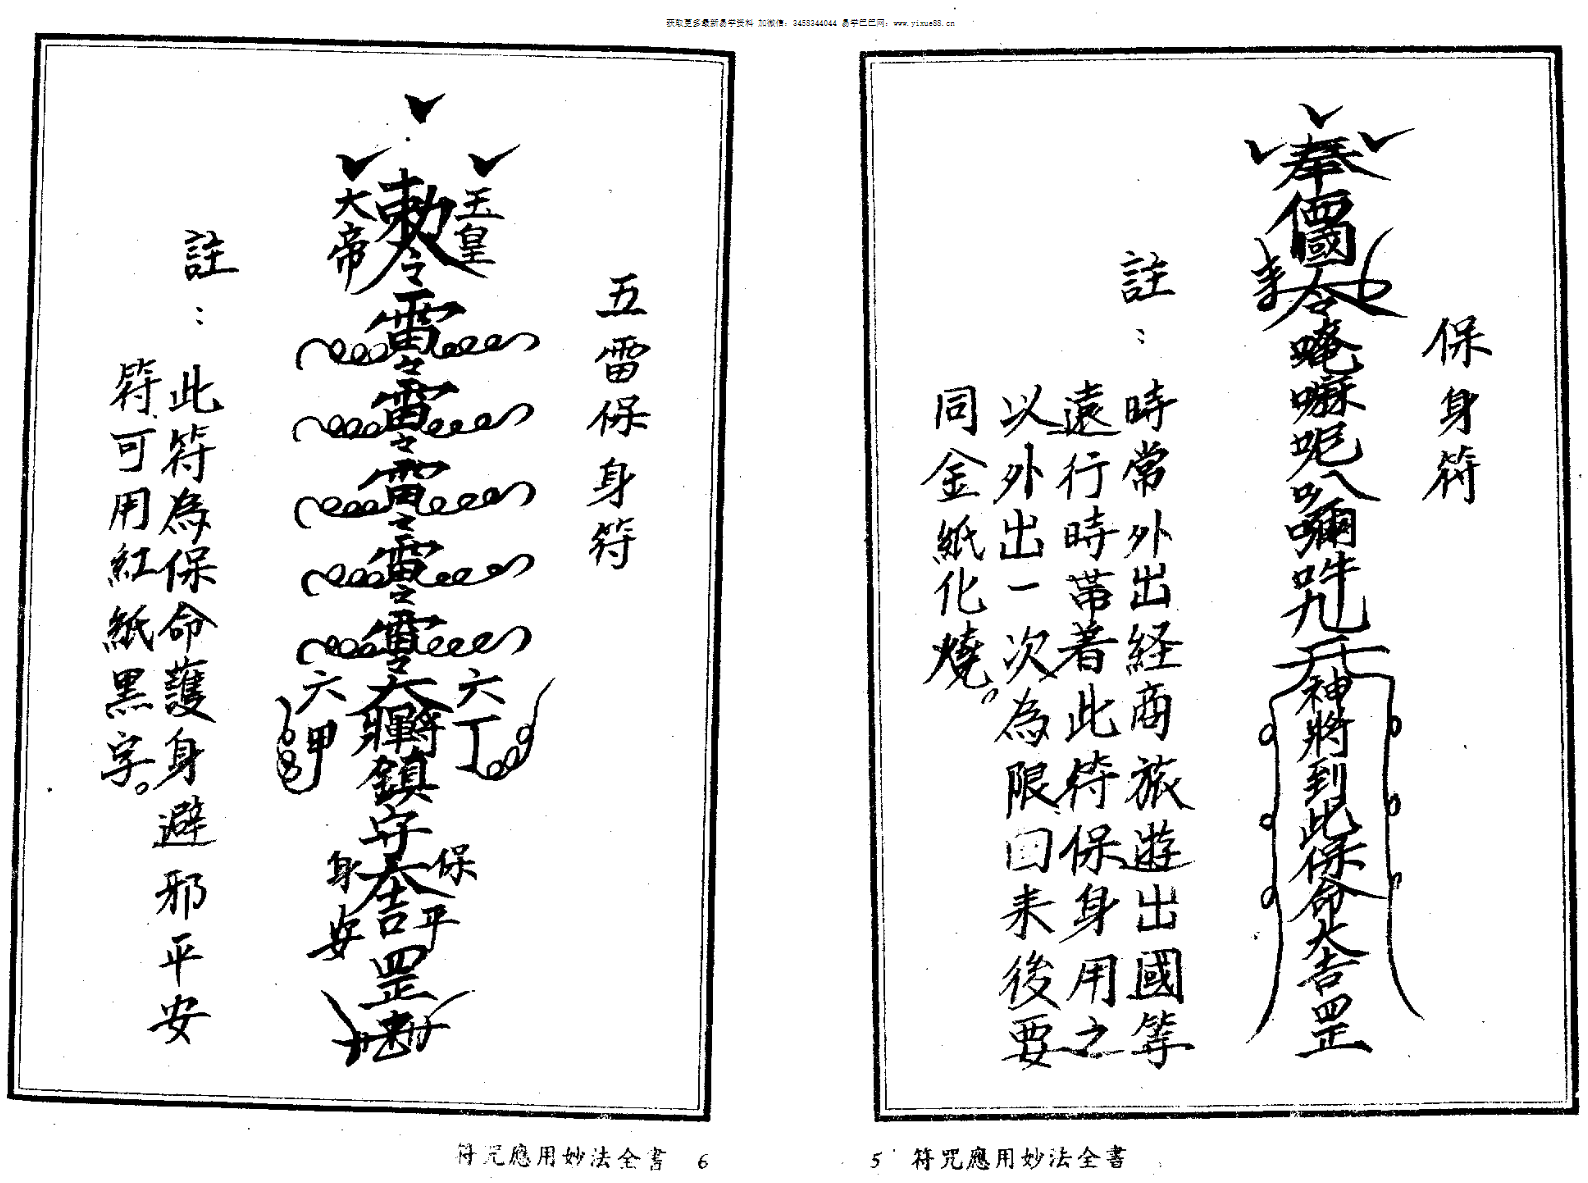 获取更多最新易学资料 加微信：3458344044 易学巴巴网：www.yixue88.cn
保身符
奉
令唵嘛呢叭囒咒
神將到此保命大吉罡
註：時常外出経商旅遊出國等
遠行時帶着此符保身用之
以外出一次為限回来後要
同金紙化燒。
5 符咒應用妙法全書
五雷保身符
玉皇
勅令雷令雷令雷令雷令雷令
大帝
六丁
六甲
鎮守大吉罡
保身
平安
註：此符為保命護身避邪平安
符可用紅紙黑字。
符咒應用妙法全書 6